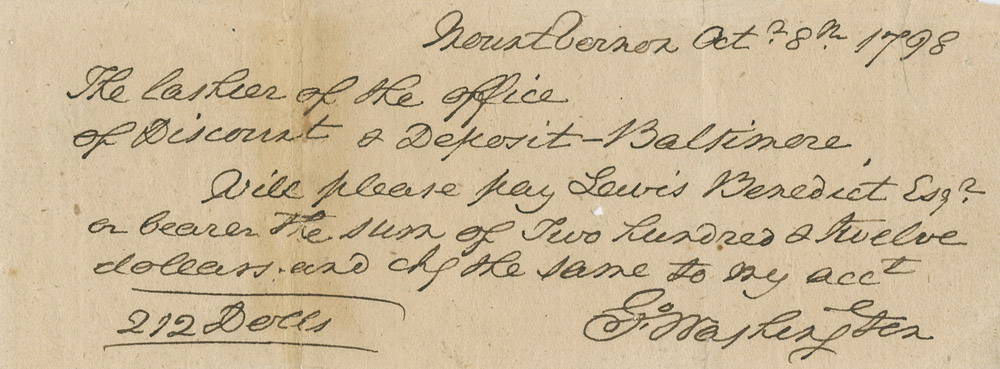 Mount Vernon Octr 8th 1798
The Cashier of the office
of Discount & Deposit - Baltimore,
Will please pay Lewis Benedict Esqr
or bearer the sum of Two hundred & twelve
dollars and chg the same to my acct
212 Dolls
Go Washington